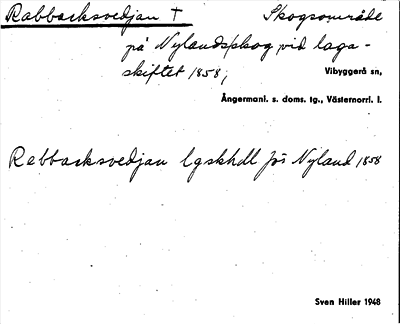 Rabbacksvedjan † Skogsområde
på Nylandsskog vid laga-
skiftet 1858;
Vibyggerå sn,
Ångermanl. s. doms. tg., Västernorrl. l.
Rabbacksvedjan lgskhdl för Nyland 1858
Sven Hiller 1948